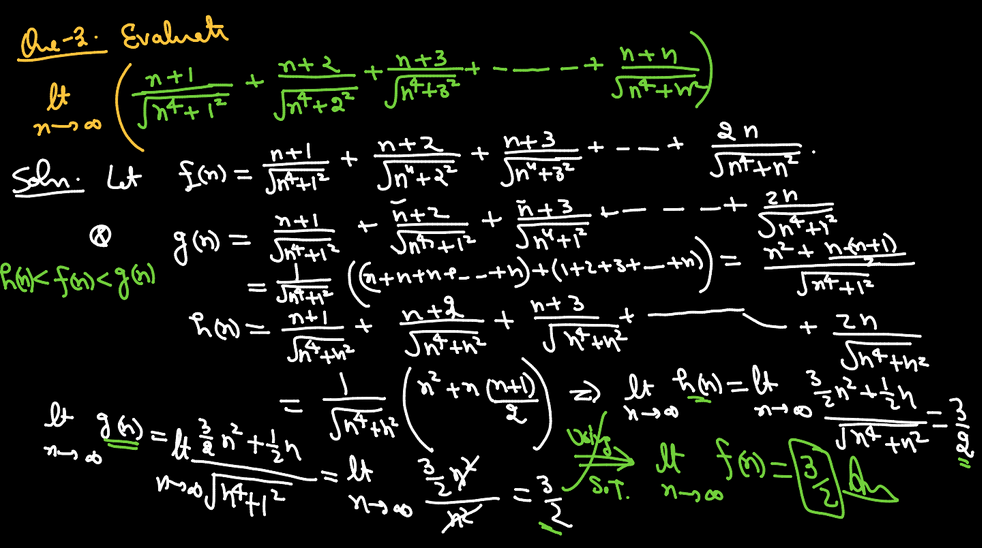 Que-3. Evaluate
lt n→∞ ( (n+1)/√(n⁴+1²) + (n+2)/√(n⁴+2²) + (n+3)/√(n⁴+3²) + ------ + (n+n)/√(n⁴+n²) )
Soln. Let f(n) = (n+1)/√(n⁴+1²) + (n+2)/√(n⁴+2²) + (n+3)/√(n⁴+3²) + --- + 2n/√(n⁴+n²).
& g(n) = (n+1)/√(n⁴+1²) + (n+2)/√(n⁴+1²) + (n+3)/√(n⁴+1²) + ---- + 2n/√(n⁴+1²)
h(n)<f(n)<g(n)
= 1/√(n⁴+1²) ((n+n+n+---+n)+(1+2+3+---+n)) = (n² + n(n+1)/2)/√(n⁴+1²)
h(n) = (n+1)/√(n⁴+n²) + (n+2)/√(n⁴+n²) + (n+3)/√(n⁴+n²) + ---- + 2n/√(n⁴+n²)
= 1/√(n⁴+n²) (n² + n(n+1)/2) ⇒ lt n→∞ h(n) = lt n→∞ (3/2 n² + 1/2 n)/√(n⁴+n²) = 3/2
lt n→∞ g(n) = lt n→∞ (3/2 n² + 1/2 n)/√(n⁴+1²) = lt n→∞ (3/2 n²)/n² = 3/2
Using S.T. ⇒ lt n→∞ f(n) = 3/2 Ans